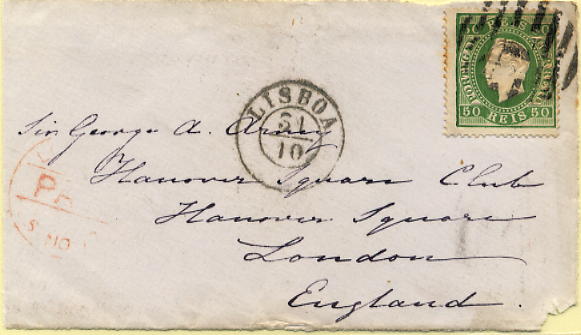 50 REIS 50
50 REIS 50
LISBOA
31
10
Sir George A. Arney
Hanover Square Club
Hanover Square
London
England.